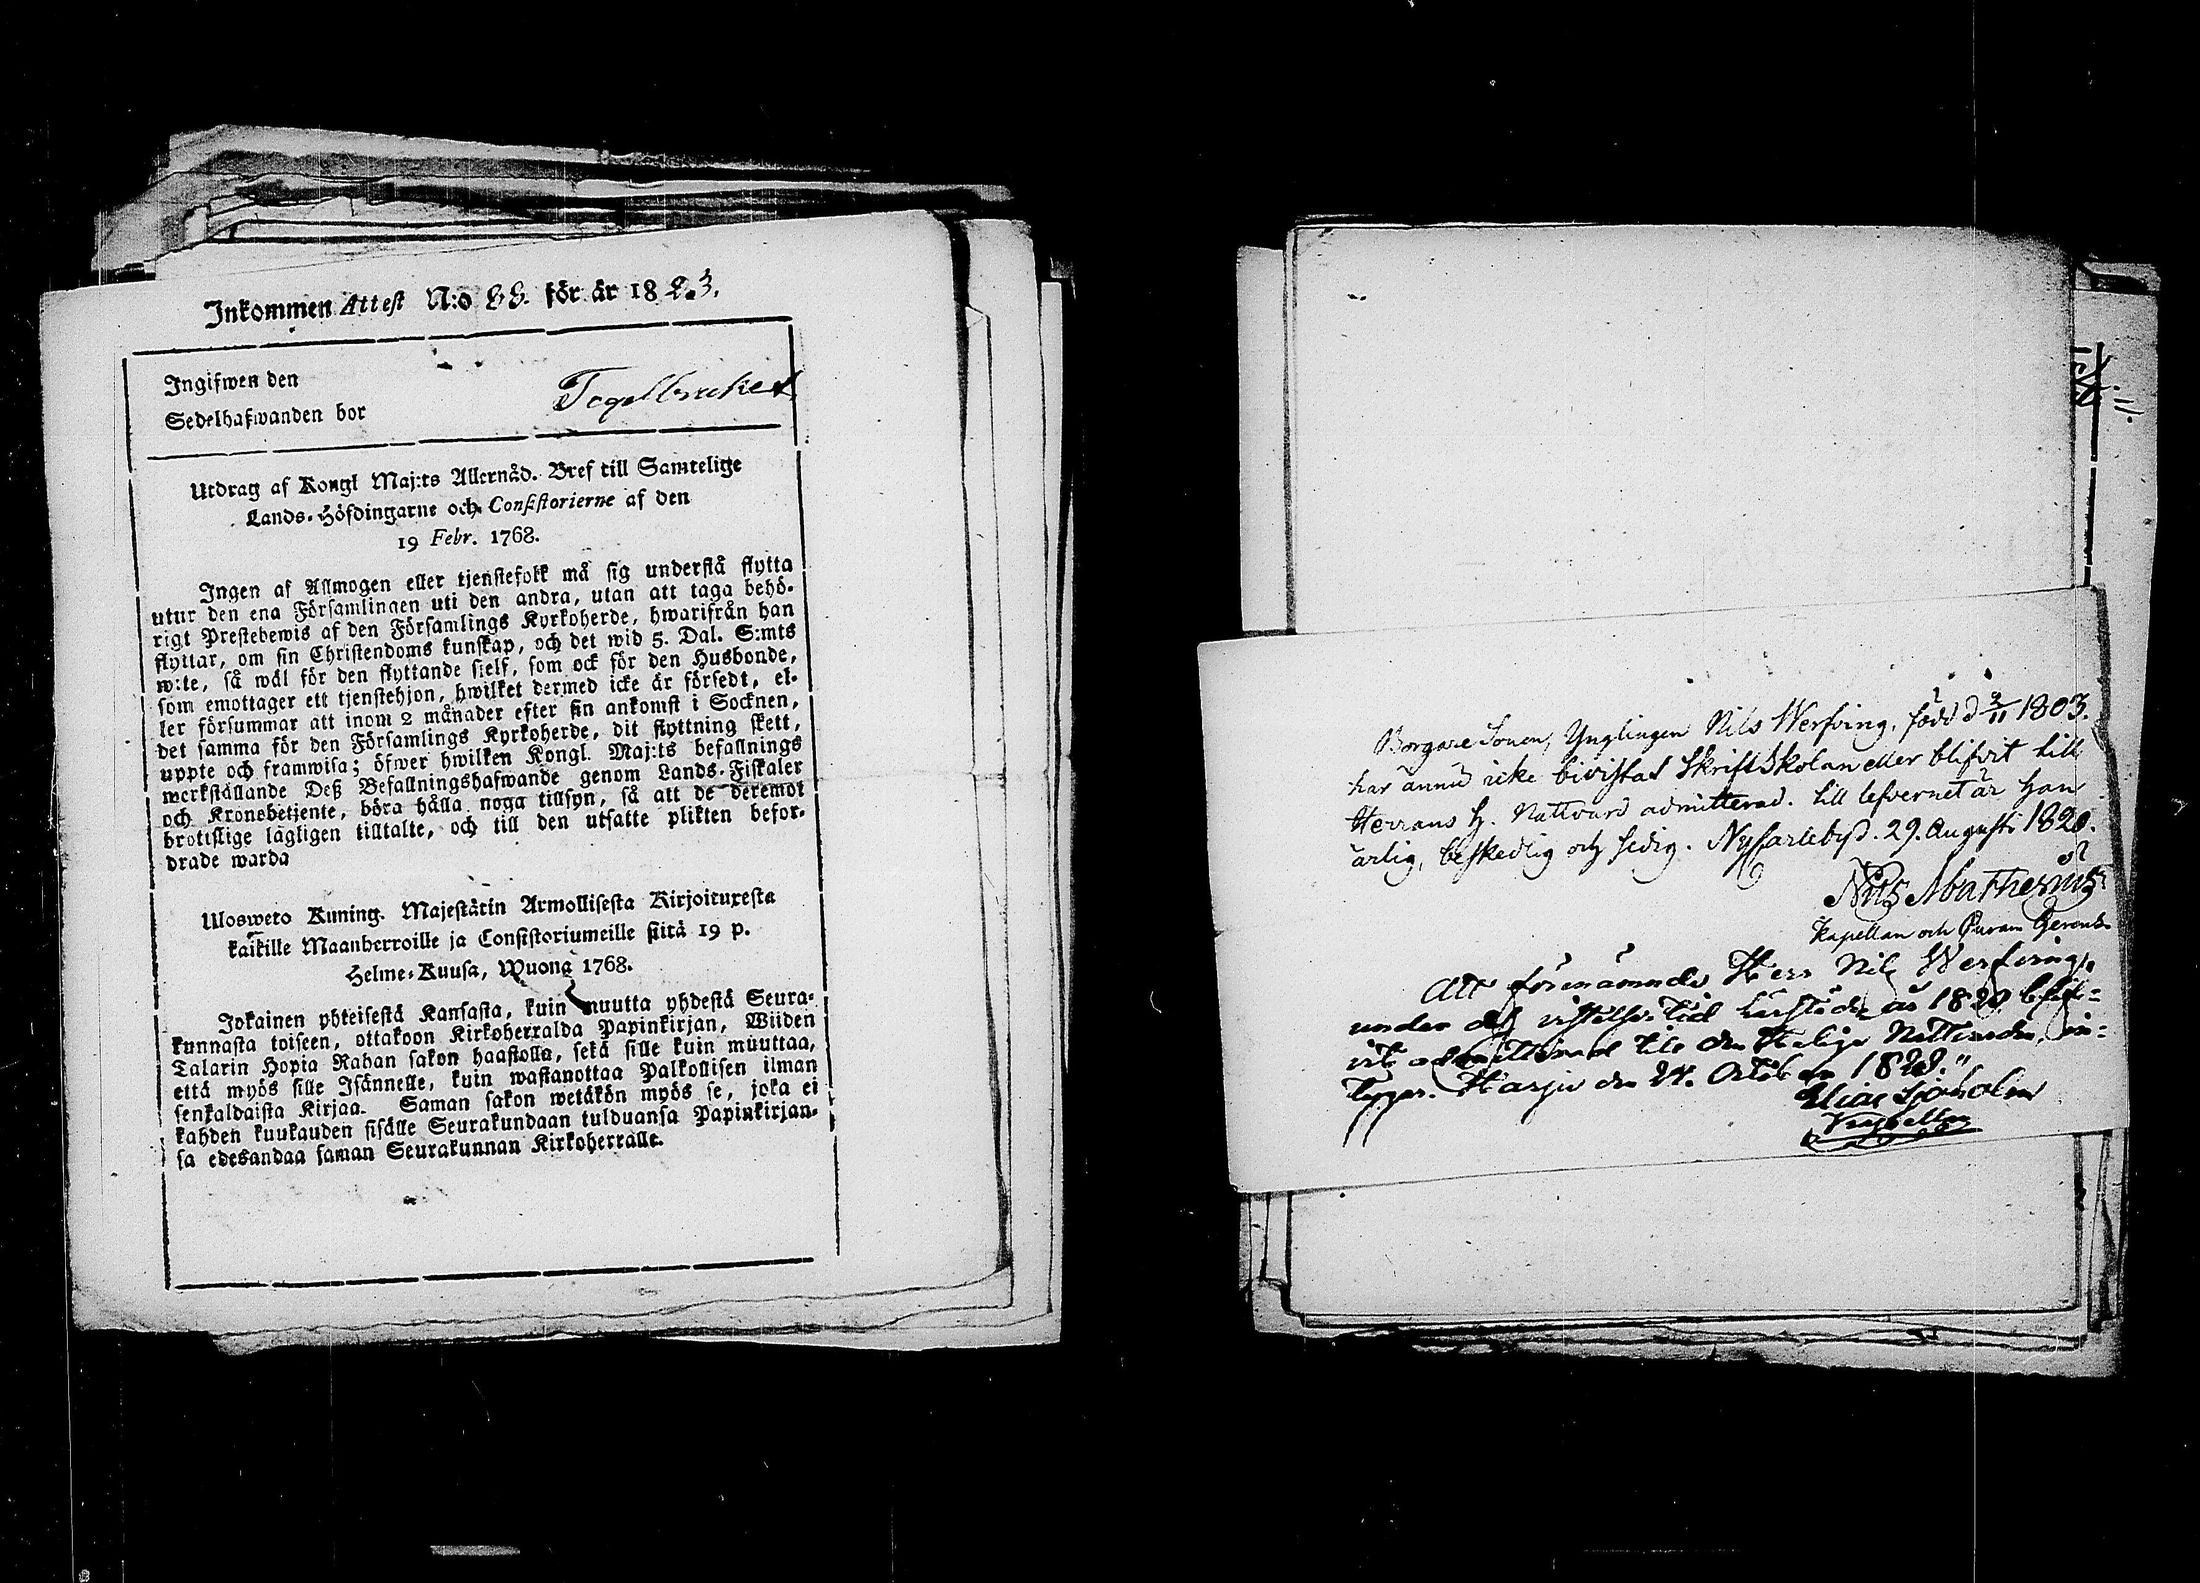 Inkommen Attest N:o 88. för år 1823.
Ingifwen den
Sedelhafwanden bor Tegelbruket
Utdrag af Kongl Maj:ts Allernåd. Bref till Samtelige
Lands-Höfdingarne och Consistorierne af den
19 Febr. 1768.
Ingen af Allmogen eller tjenstefolk må sig understå flytta
utur den ena Församlingen uti den andra, utan att taga behö-
rigt Prestebewis af den Församlings Kyrkoherde, hwarifrån han
flyttar, om sin Christendoms kunskap, och det wid 5. Dal. S:mts
w:te, så wäl för den flyttande sielf, som ock för den Husbonde,
som emottager ett tjenstehjon, hwilket dermed icke är försedt, el-
ler försummar att inom 2 månader efter sin ankomst i Socknen,
det samma för den Församlings Kyrkoherde, dit flyttning skett,
uppte och framwisa; öfwer hwilken Kongl. Maj:ts befallnings
werkställande Deß Befallningshafwande genom Lands-Fiskaler
och Kronobetjente, böra hålla noga tillsyn, så att de deremot
brotslige lagligen tilltalte, och till den utsatte plikten befor-
drade warda
Ulosweto Kuning. Majestätin Armollisesta Kirjoituxesta
kaikille Maanherroille ja Consistoriumeille siitä 19 p.
Helme-Kuusa, Wuona 1768.
Jokainen yhteisestä Kansasta, kuin muutta yhdestä Seura-
kunnasta toiseen, ottakoon Kirkoherralda Papinkirjan, Wiiden
Talarin Hopia Rahan sakon haastolla, sekä sille kuin muuttaa,
että myös sille Isännelle, kuin wastanottaa Palkollisen ilman
senkaldaista Kirjaa. Saman sakon wetäkön myös se, joka ei
kahden kuukauden sisälle Seurakundaan tulduansa Papinkirjan-
sa edesandaa saman Seurakunnan Kirkoherralle.
Borgare Sonen, Ynglingen Nils Werfving, född d 3/11 1803.
har ännu icke bivistat Skriftskolan eller blifvit till
Herrans H. Nattvard admitterad. till lefvernet är han
ärlig, beskedlig och sedig. Nycarleby d. 29. Augusti 1820.
Nils
Kapellan och
Att förenämnde Herr Nils Werfving,
under dess vistelse tid härstädes år 1820 blif-
vit admitterad till den Helige Nattvarden, in-
tygar. Harju den 24. October 1823."
Elias Sjöholm
Kapellan